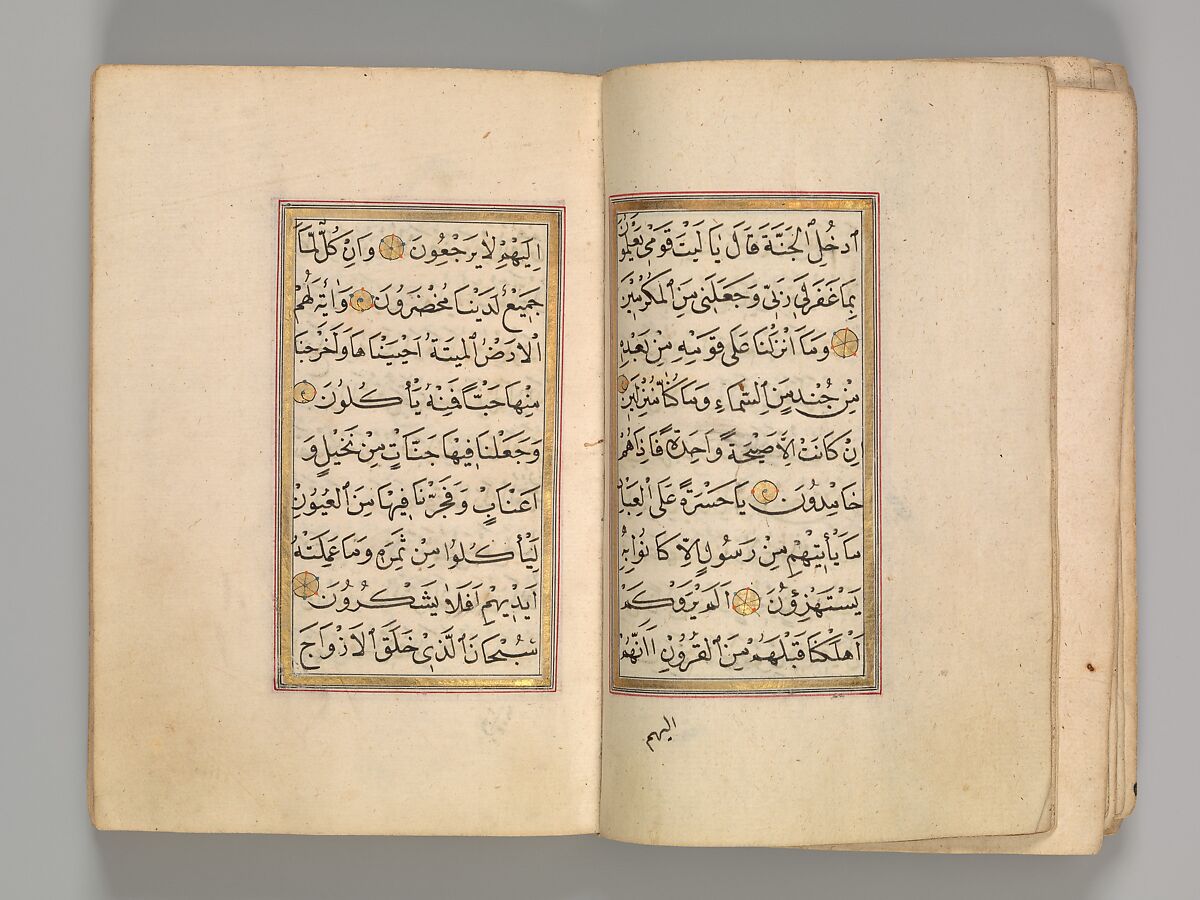 اُدْخُلِ الْجَنَّةَ قَالَ يَا لَيْتَ قَوْمِى يَعْلَمُونَ
بِمَا غَفَرَ لِى رَبِّى وَجَعَلَنِى مِنَ الْمُكْرَمِينَ
وَمَا اَنْزَلْنَا عَلَى قَوْمِهِ مِنْ بَعْدِهِ
مِنْ جُنْدٍ مِنَ السَّمَاءِ وَمَا كُنَّا مُنْزِلِينَ
اِنْ كَانَتْ اِلَّا صَيْحَةً وَاحِدَةً فَاِذَا هُمْ
خَامِدُونَ يَا حَسْرَةً عَلَى الْعِبَادِ
مَا يَأْتِيهِمْ مِنْ رَسُولٍ اِلَّا كَانُوا بِهِ
يَسْتَهْزِؤُنَ اَلَمْ يَرَوْا كَمْ
اَهْلَكْنَا قَبْلَهُمْ مِنَ الْقُرُونِ اَنَّهُمْ
اليهم
اِلَيْهِمْ لَا يَرْجِعُونَ وَاِنْ كُلٌّ لَمَّا
جَمِيعٌ لَدَيْنَا مُحْضَرُونَ وَاٰيَةٌ لَهُمُ
الْاَرْضُ الْمَيْتَةُ اَحْيَيْنَاهَا وَاَخْرَجْنَا
مِنْهَا حَبًّا فَمِنْهُ يَأْكُلُونَ
وَجَعَلْنَا فِيهَا جَنَّاتٍ مِنْ نَخِيلٍ وَ
اَعْنَابٍ وَفَجَّرْنَا فِيهَا مِنَ الْعُيُونِ
لِيَأْكُلُوا مِنْ ثَمَرِهِ وَمَا عَمِلَتْهُ
اَيْدِيهِمْ اَفَلَا يَشْكُرُونَ
سُبْحَانَ الَّذِى خَلَقَ الْاَزْوَاجَ